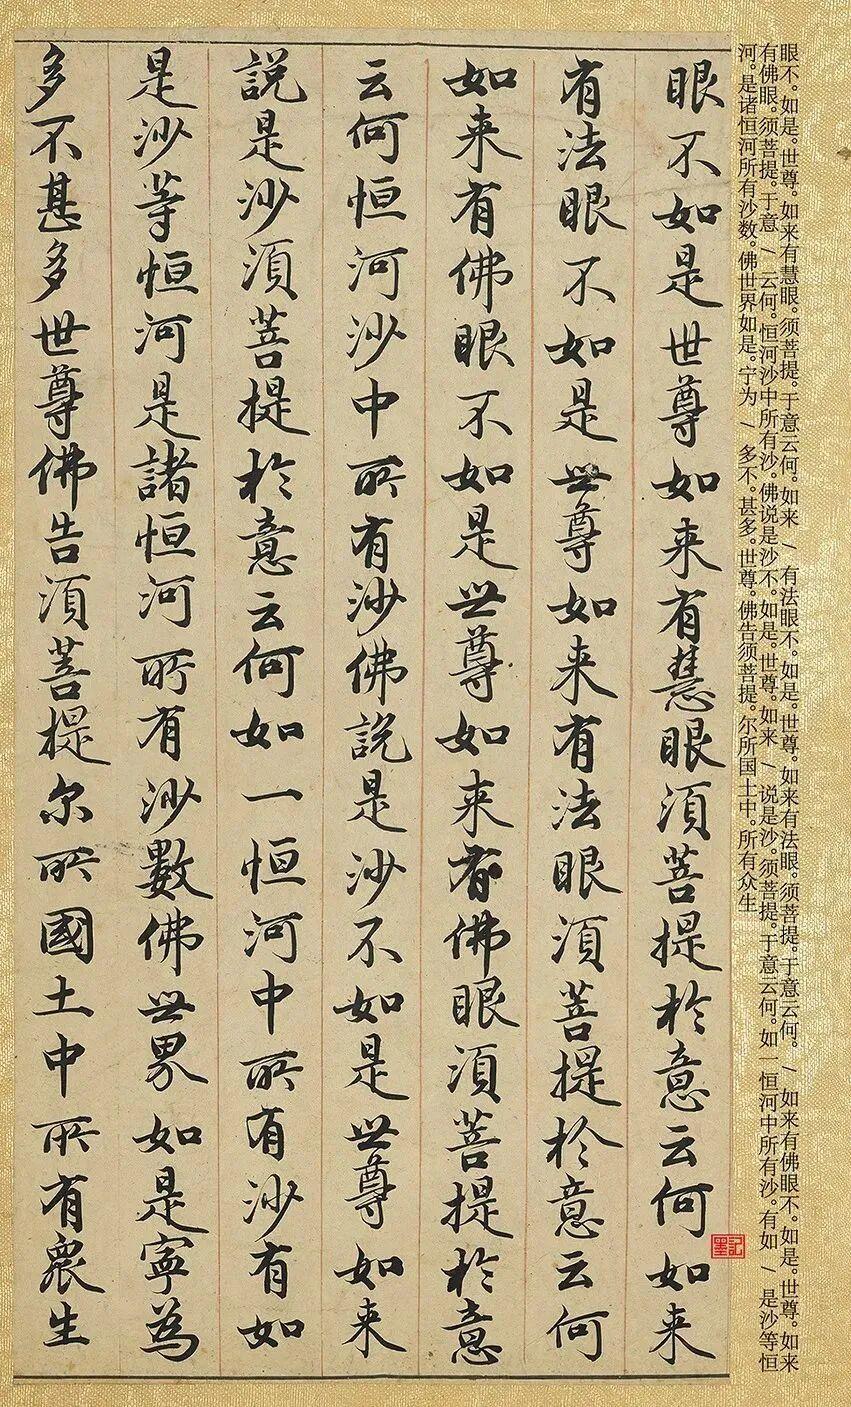 眼不。如是。世尊。如来有慧眼。须菩提。于意云何。如来 / 有法眼不。如是。世尊。如来有法眼。须菩提。于意云何。 / 如来有佛眼不。如是。世尊。如来
有佛眼。须菩提。于意 / 云何。恒河沙中所有沙。佛说是沙不。如是。世尊。如来 / 说是沙。须菩提。于意云何。如一恒河中所有沙。有如 / 是沙等恒
河。是诸恒河所有沙数。佛世界如是。宁为 / 多不。甚多。世尊。佛告须菩提。尔所国土中。所有众生
眼不如是世尊如来有慧眼須菩提於意云何如来
有法眼不如是世尊如来有法眼須菩提於意云何
如来有佛眼不如是世尊如来有佛眼須菩提於意
云何恒河沙中所有沙佛說是沙不如是世尊如来
說是沙須菩提於意云何如一恒河中所有沙有如
是沙等恒河是諸恒河所有沙數佛世界如是寧為
多不甚多世尊佛告須菩提尔所國土中所有衆生
墨記